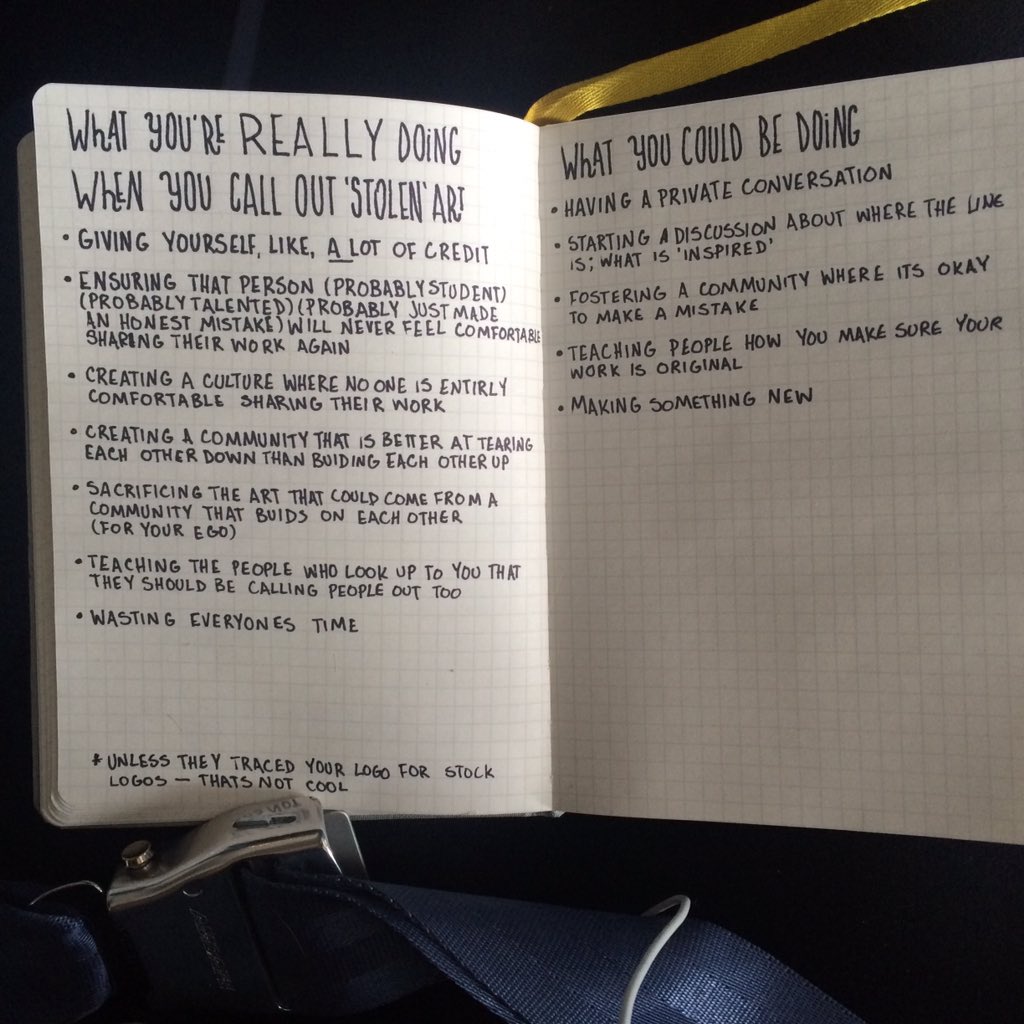 WHAT YOU'RE REALLY DOING
WHEN YOU CALL OUT 'STOLEN' ART
• GIVING YOURSELF, LIKE, A LOT OF CREDIT
• ENSURING THAT PERSON (PROBABLY STUDENT)
(PROBABLY TALENTED) (PROBABLY JUST MADE
AN HONEST MISTAKE) WILL NEVER FEEL COMFORTABLE
SHARING THEIR WORK AGAIN
• CREATING A CULTURE WHERE NO ONE IS ENTIRLY
COMFORTABLE SHARING THEIR WORK
• CREATING A COMMUNITY THAT IS BETTER AT TEARING
EACH OTHER DOWN THAN BUIDING EACH OTHER UP
• SACRIFICING THE ART THAT COULD COME FROM A
COMMUNITY THAT BUIDS ON EACH OTHER
(FOR YOUR EGO)
• TEACHING THE PEOPLE WHO LOOK UP TO YOU THAT
THEY SHOULD BE CALLING PEOPLE OUT TOO
• WASTING EVERYONES TIME
* UNLESS THEY TRACED YOUR LOGO FOR STOCK
LOGOS — THATS NOT COOL
WHAT YOU COULD BE DOING
• HAVING A PRIVATE CONVERSATION
• STARTING A DISCUSSION ABOUT WHERE THE LINE
IS; WHAT IS 'INSPIRED'
• FOSTERING A COMMUNITY WHERE ITS OKAY
TO MAKE A MISTAKE
• TEACHING PEOPLE HOW YOU MAKE SURE YOUR
WORK IS ORIGINAL
• MAKING SOMETHING NEW